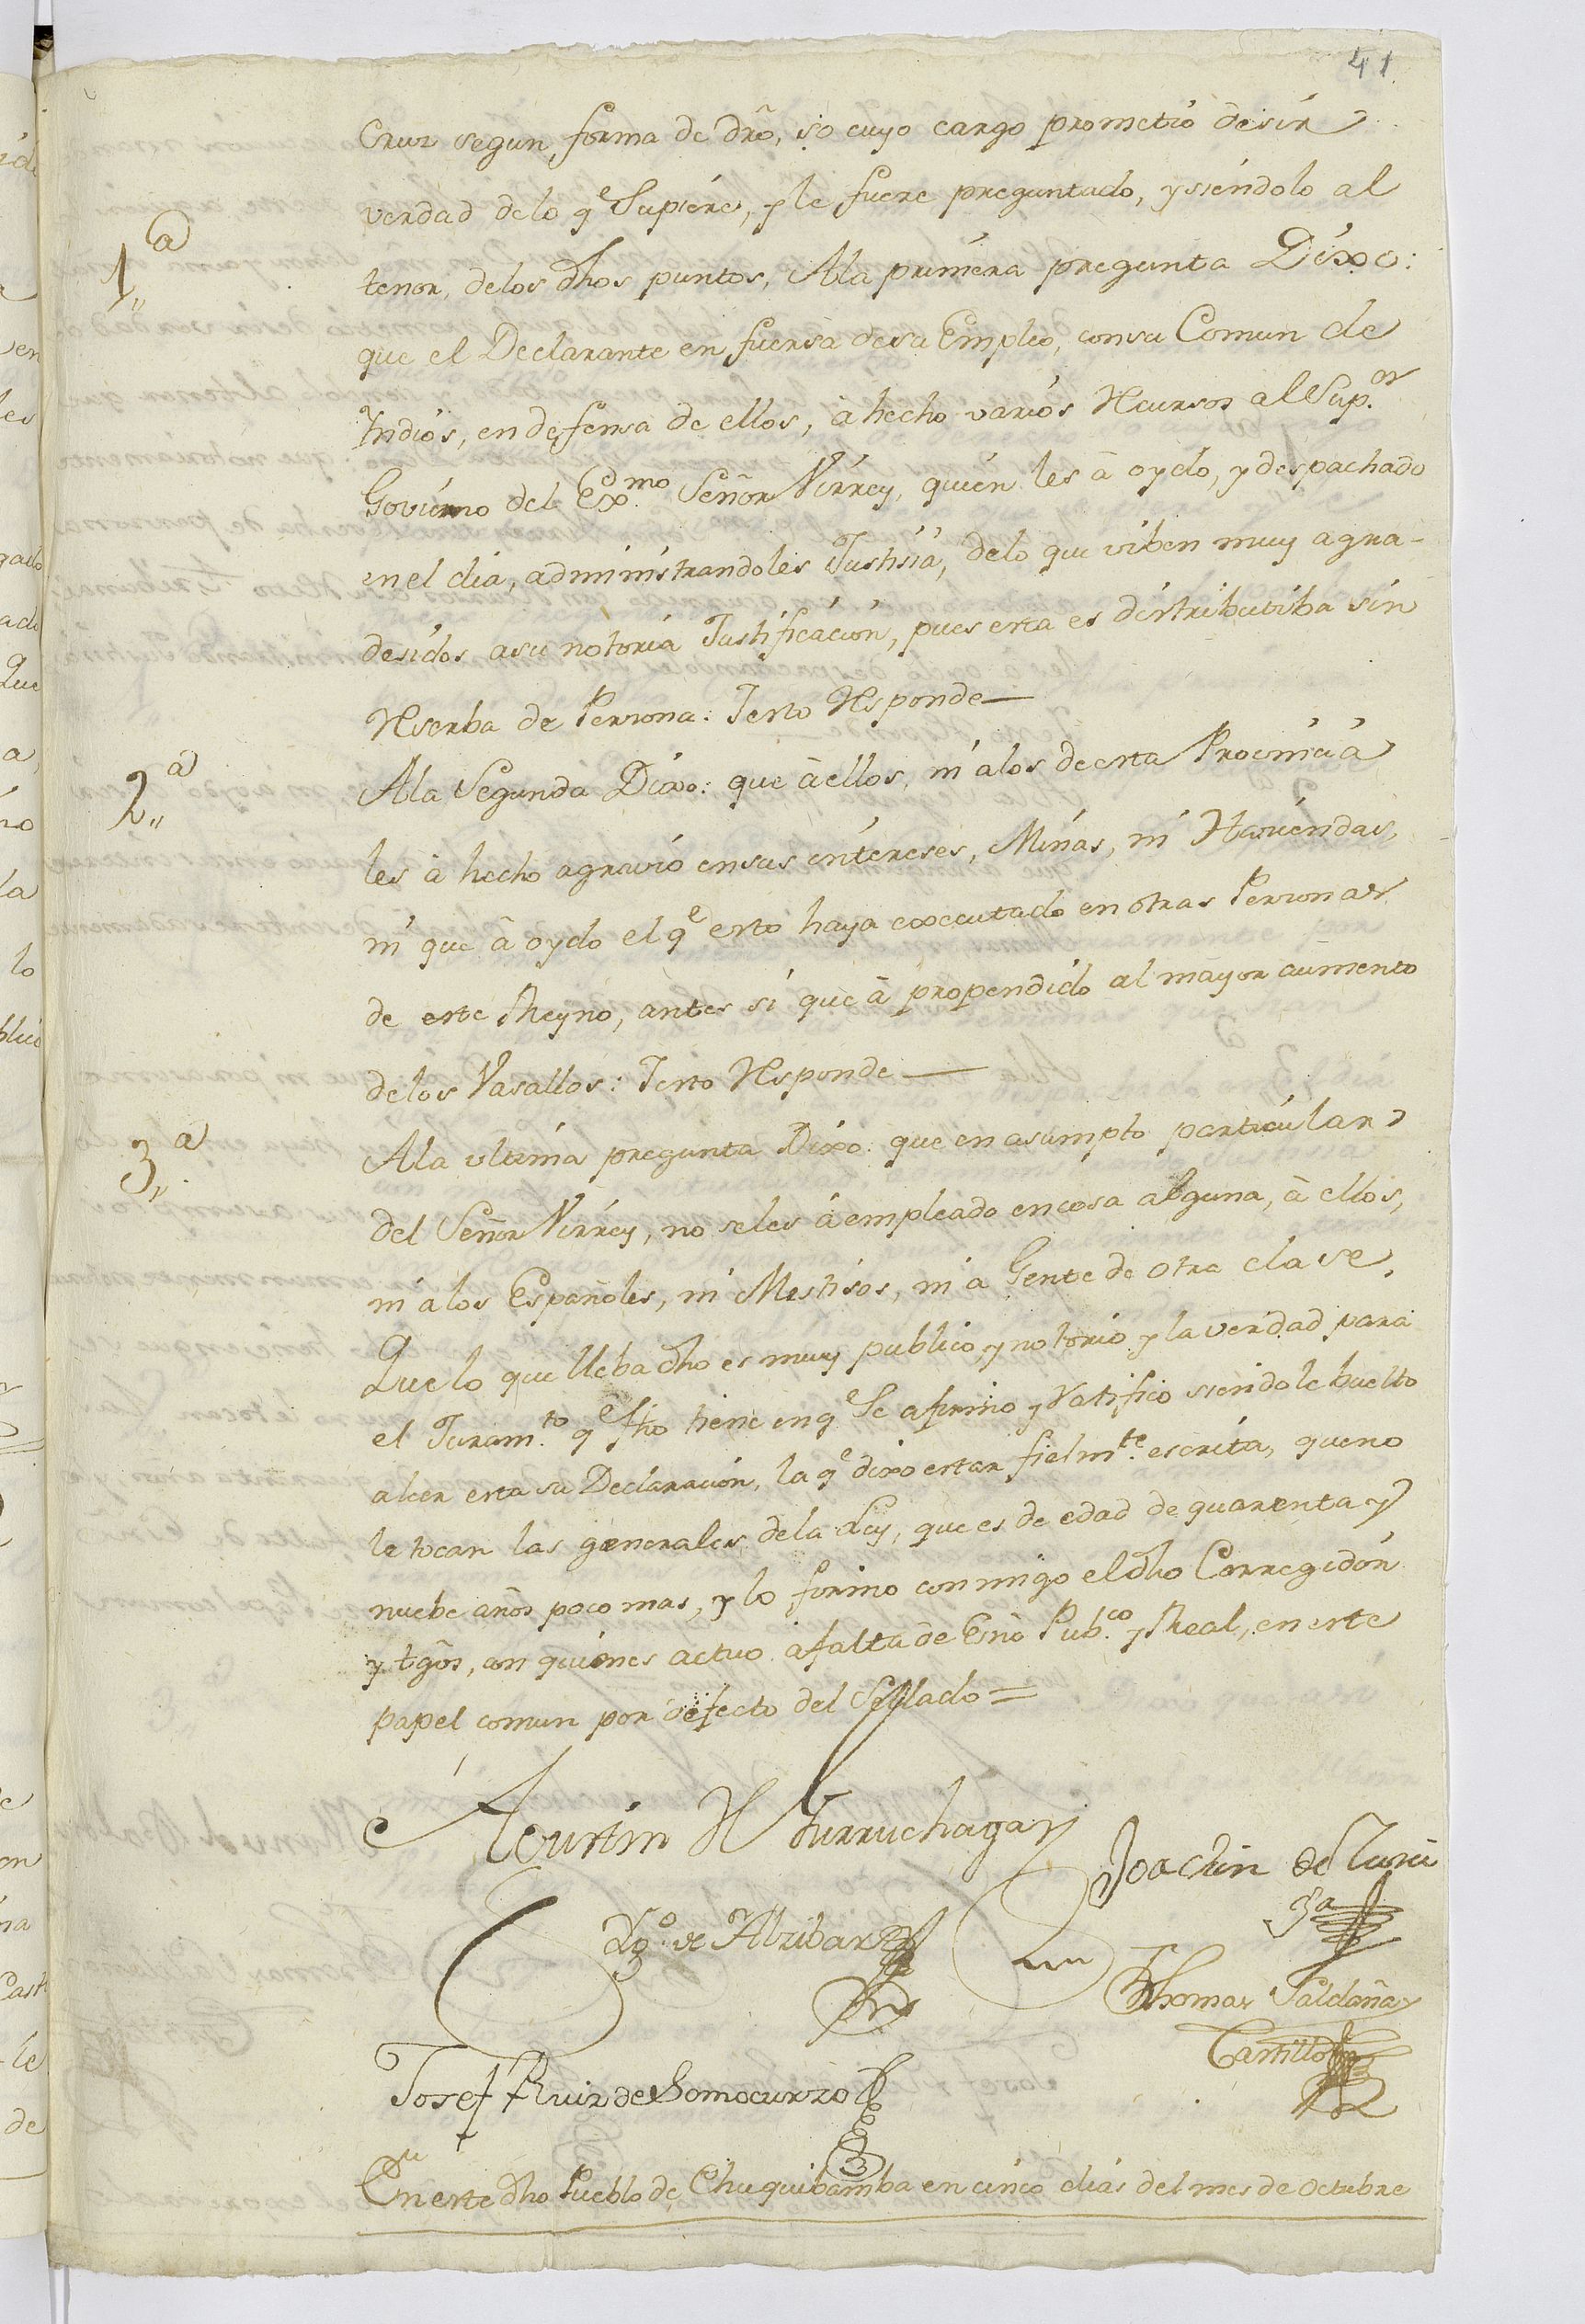 41
Cruz segun forma de dr̃o, so cuyo cargo prometió desir
verdad delo q.e Supiére, y le fuere preguntado, y siéndolo al
1,,a
tenor, delos dhos puntos, Ala priméra pregunta Dixo:
que el Declarante en fuersa desu Empleo, consu Comun de
Indios, en defensa de ellos, à hecho varios Recursos al Sup.or
Govierno del Ex.mo Señor Virrey, quién les à oydo, y despachado
enel dia, administrandoles Justisia, delo que viben muy agra-
desidos asu notoria Justificación, pues esta es distributiba sin
Reserba de Persona: Iesto Responde—
2,,a
Ala Segunda Dixo: que àellos, ni alos deesta Provincia
les à hecho agravio ensus intereses, Minas, ni Haciendas,
ni que à oydo el q.e esto haya execcutado en otras Personas
de este Rheyno, antes si que à propendido al mayor aumento
delos Vasallos: Iesto Responde—
3,,a
Ala ultima pregunta Dixo: que en asumpto particular
del Señor Virrey, no seles àempleado encosa alguna, à ellos,
ni alos Españoles, ni Mestisos, ni a Gente de otra clase,
Que lo que lleba dho es muy publico, y notorio y la verdad para
el Juram.to q.e fho tiene en q.e Se afirmo y Ratifico siendole buelto
aleer esta su Declaración, la q.e dixo estar fielm.te escrita, queno
le tocan las generales dela Ley, que es de edad de quarenta y
nuebe años poco mas, y lo firmo conmigo eldho Corregidor
y tg̃os, con quiénes actuo afalta de Es̃no Pub.co y Rheal, en este
papel comun por defecto del Sellado=
Agustin H Yurruchaga
Joachin de
Dg.o de Abribar
Thomas Saldaña y
Castillo
Josef Ruiz de Somocurzo
En este dho Pueblo de Chuquibamba en cinco dias del mes de Octubre